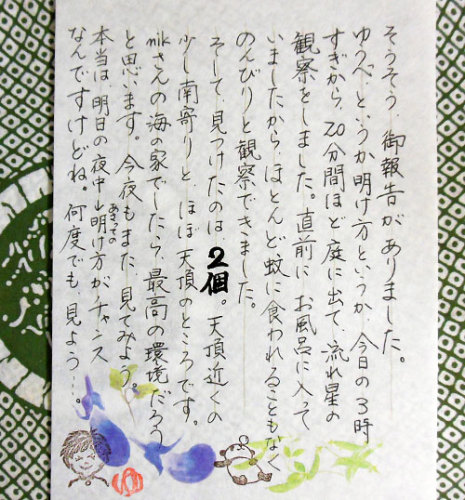 そうそう、御報告がありました。
ゆうべ、というか明け方というか、今日の3時
すぎから、20分間ほど庭に出て、流れ星の
観察をしました。直前に、お風呂に入って
いましたから、ほとんど蚊に食われることもなく
のんびりと観察できました。
そして、見つけたのは、2個。天頂近くの
少し南寄りと、ほぼ天頂のところです。
mikさんの海の家でしたら、最高の環境だろう
と思います。今夜もまた、見てみよう。
本当は、明日の夜中〜明け方が、チャンス
あさっての
なんですけどね。何度でも、見よう…。